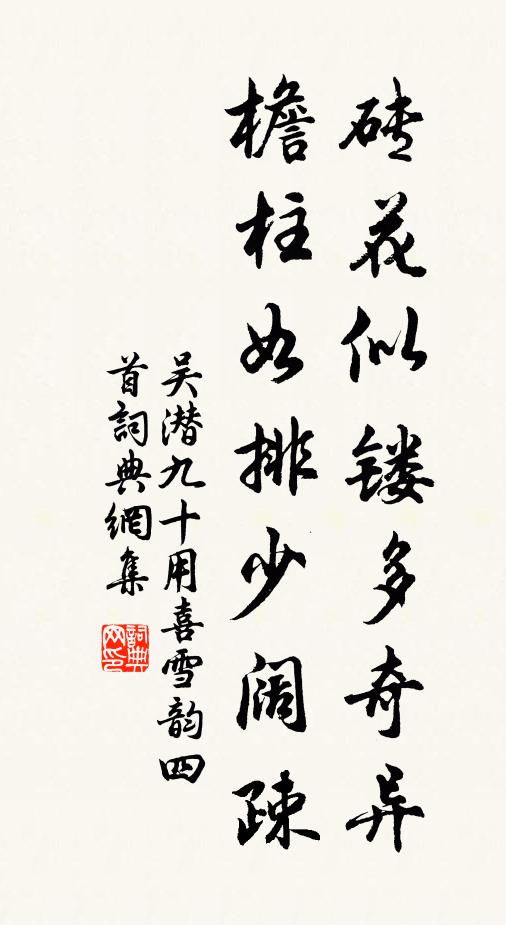 砖花似镂多奇异
檐柱如排少阔疎
吴潜九十用喜雪韵四
首詞典網集
詞典
网印